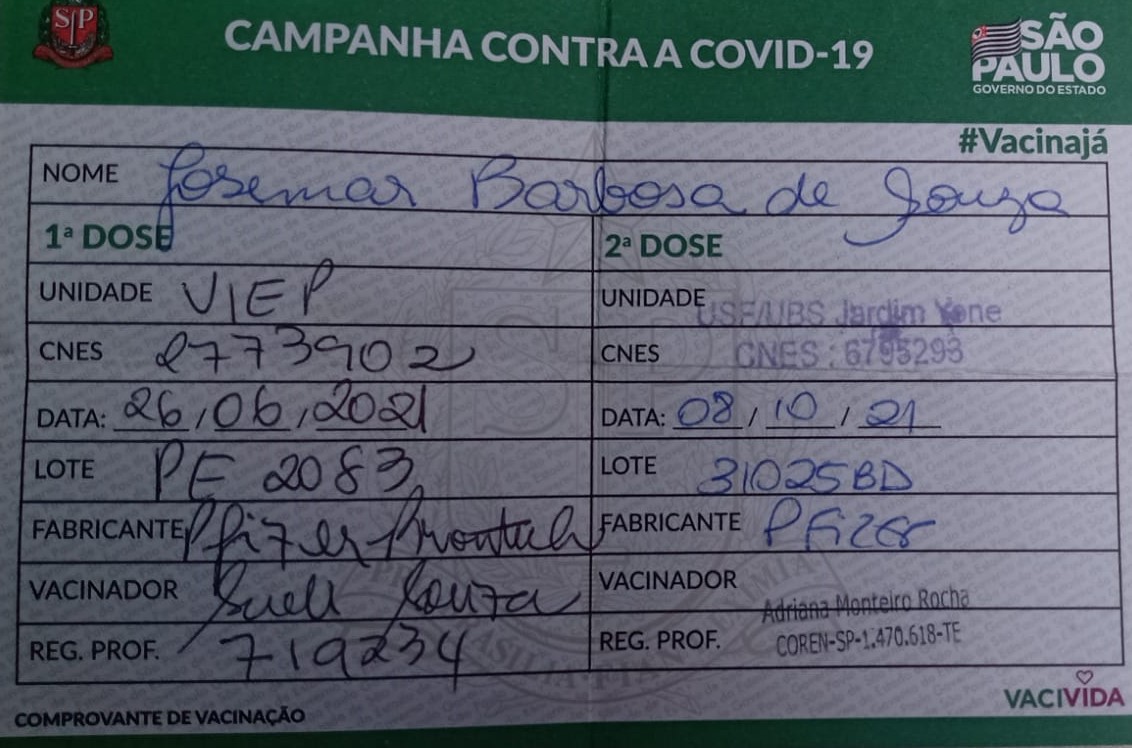 SP
CAMPANHA CONTRA A COVID-19
SÃO
PAULO
GOVERNO DO ESTADO
#Vacinajá
NOME Josemar Barbosa de Souza
1ª DOSE
2ª DOSE
UNIDADE VIEP
UNIDADE USF/UBS Jardim Yone
CNES 2773902
CNES CNES : 6795293
DATA: 26/06/2021
DATA: 08/10/21
LOTE PE 2083
LOTE 31025BD
FABRICANTE Pfizer
FABRICANTE PFizer
VACINADOR Sueli Souza
VACINADOR Adriana Monteiro Rocha
REG. PROF. 719234
REG. PROF. COREN-SP-1.470.618-TE
COMPROVANTE DE VACINAÇÃO
VACIVIDA